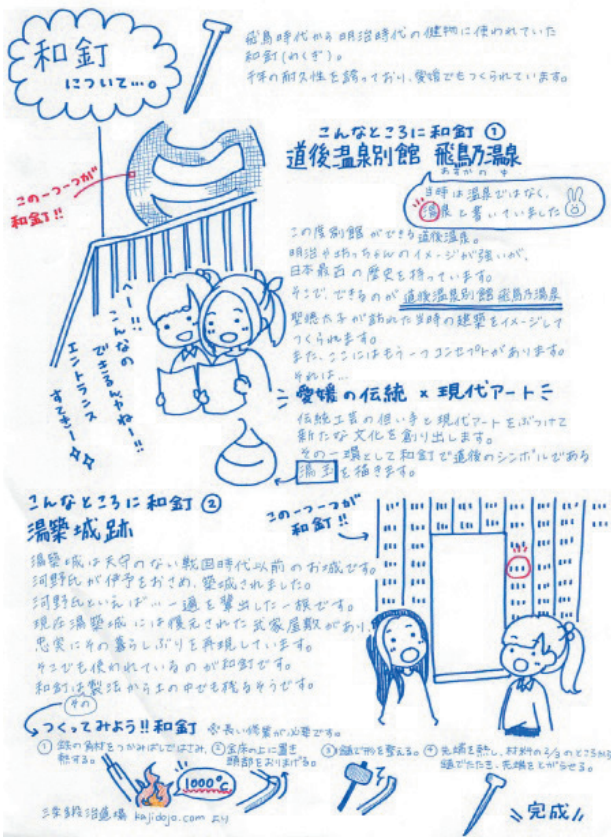 和釘
について…。
飛鳥時代から明治時代の健物に使われていた
和釘(わくぎ)。
千年の耐久性を誇っており、愛媛でもつくられています。
この一つ一つが
和釘!!
こんなところに和釘①
道後温泉別館 飛鳥乃温泉
あすかのゆ
当時は温泉ではなく、
湯泉と書いていました
この度別館ができる道後温泉。
明治や坊っちゃんのイメージが強いが、
日本最古の歴史を持っています。
そこで、できるのが道後温泉別館飛鳥乃温泉
聖徳太子が訪れた当時の建築をイメージして
つくられます。
また、ここにはもう一つコンセプトがあります。
それは…
へー!!
こんなの
できるんやねー!!
エントランス
すてきー
愛媛の伝統×現代アート
伝統工芸の担い手と現代アートをぶつけて
新たな文化を創り出します。
その一環として和釘で道後のシンボルである
湯玉を描きます。
こんなところに和釘②
湯築城跡
この一つ一つが
和釘!!
湯築城は天守のない戦国時代以前のお城です。
河野氏が伊予をおさめ、築城されました。
河野氏といえば…一遍を輩出した一族です。
現在湯築城には復元された武家屋敷があり、
忠実にその暮らしぶりを再現しています。
そこでも使われているのが和釘です。
和釘は製法から土の中でも残るそうです。
その
つくってみよう!!和釘 ※長い修業が必要です。
①鉄の角材をつかみばしではさみ、
熱する。
1000℃
②金床の上に置き
頭部をおりまげる。
③鎚で形を整える。
④先端を熱し、材料の2/3のところから
鎚でたたき、先端をとがらせる。
鍛冶道場 kajidojo.com より
完成